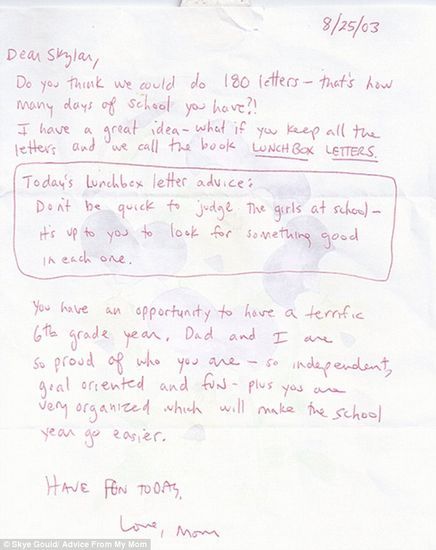 8/25/03
Dear Skylar,
Do you think we could do 180 letters – that's how
many days of school you have?!
I have a great idea – what if you keep all the
letters and we call the book LUNCHBOX LETTERS.
Today's Lunchbox letter advice:
Don't be quick to judge the girls at school –
it's up to you to look for something good
in each one.
You have an opportunity to have a terrific
6th grade year. Dad and I are
so proud of who you are – so independent,
goal oriented and fun – plus you are
very organized which will make the school
year go easier.
HAVE FUN TODAY,
Love, Mom
© Skye Gould/ Advice From My Mom